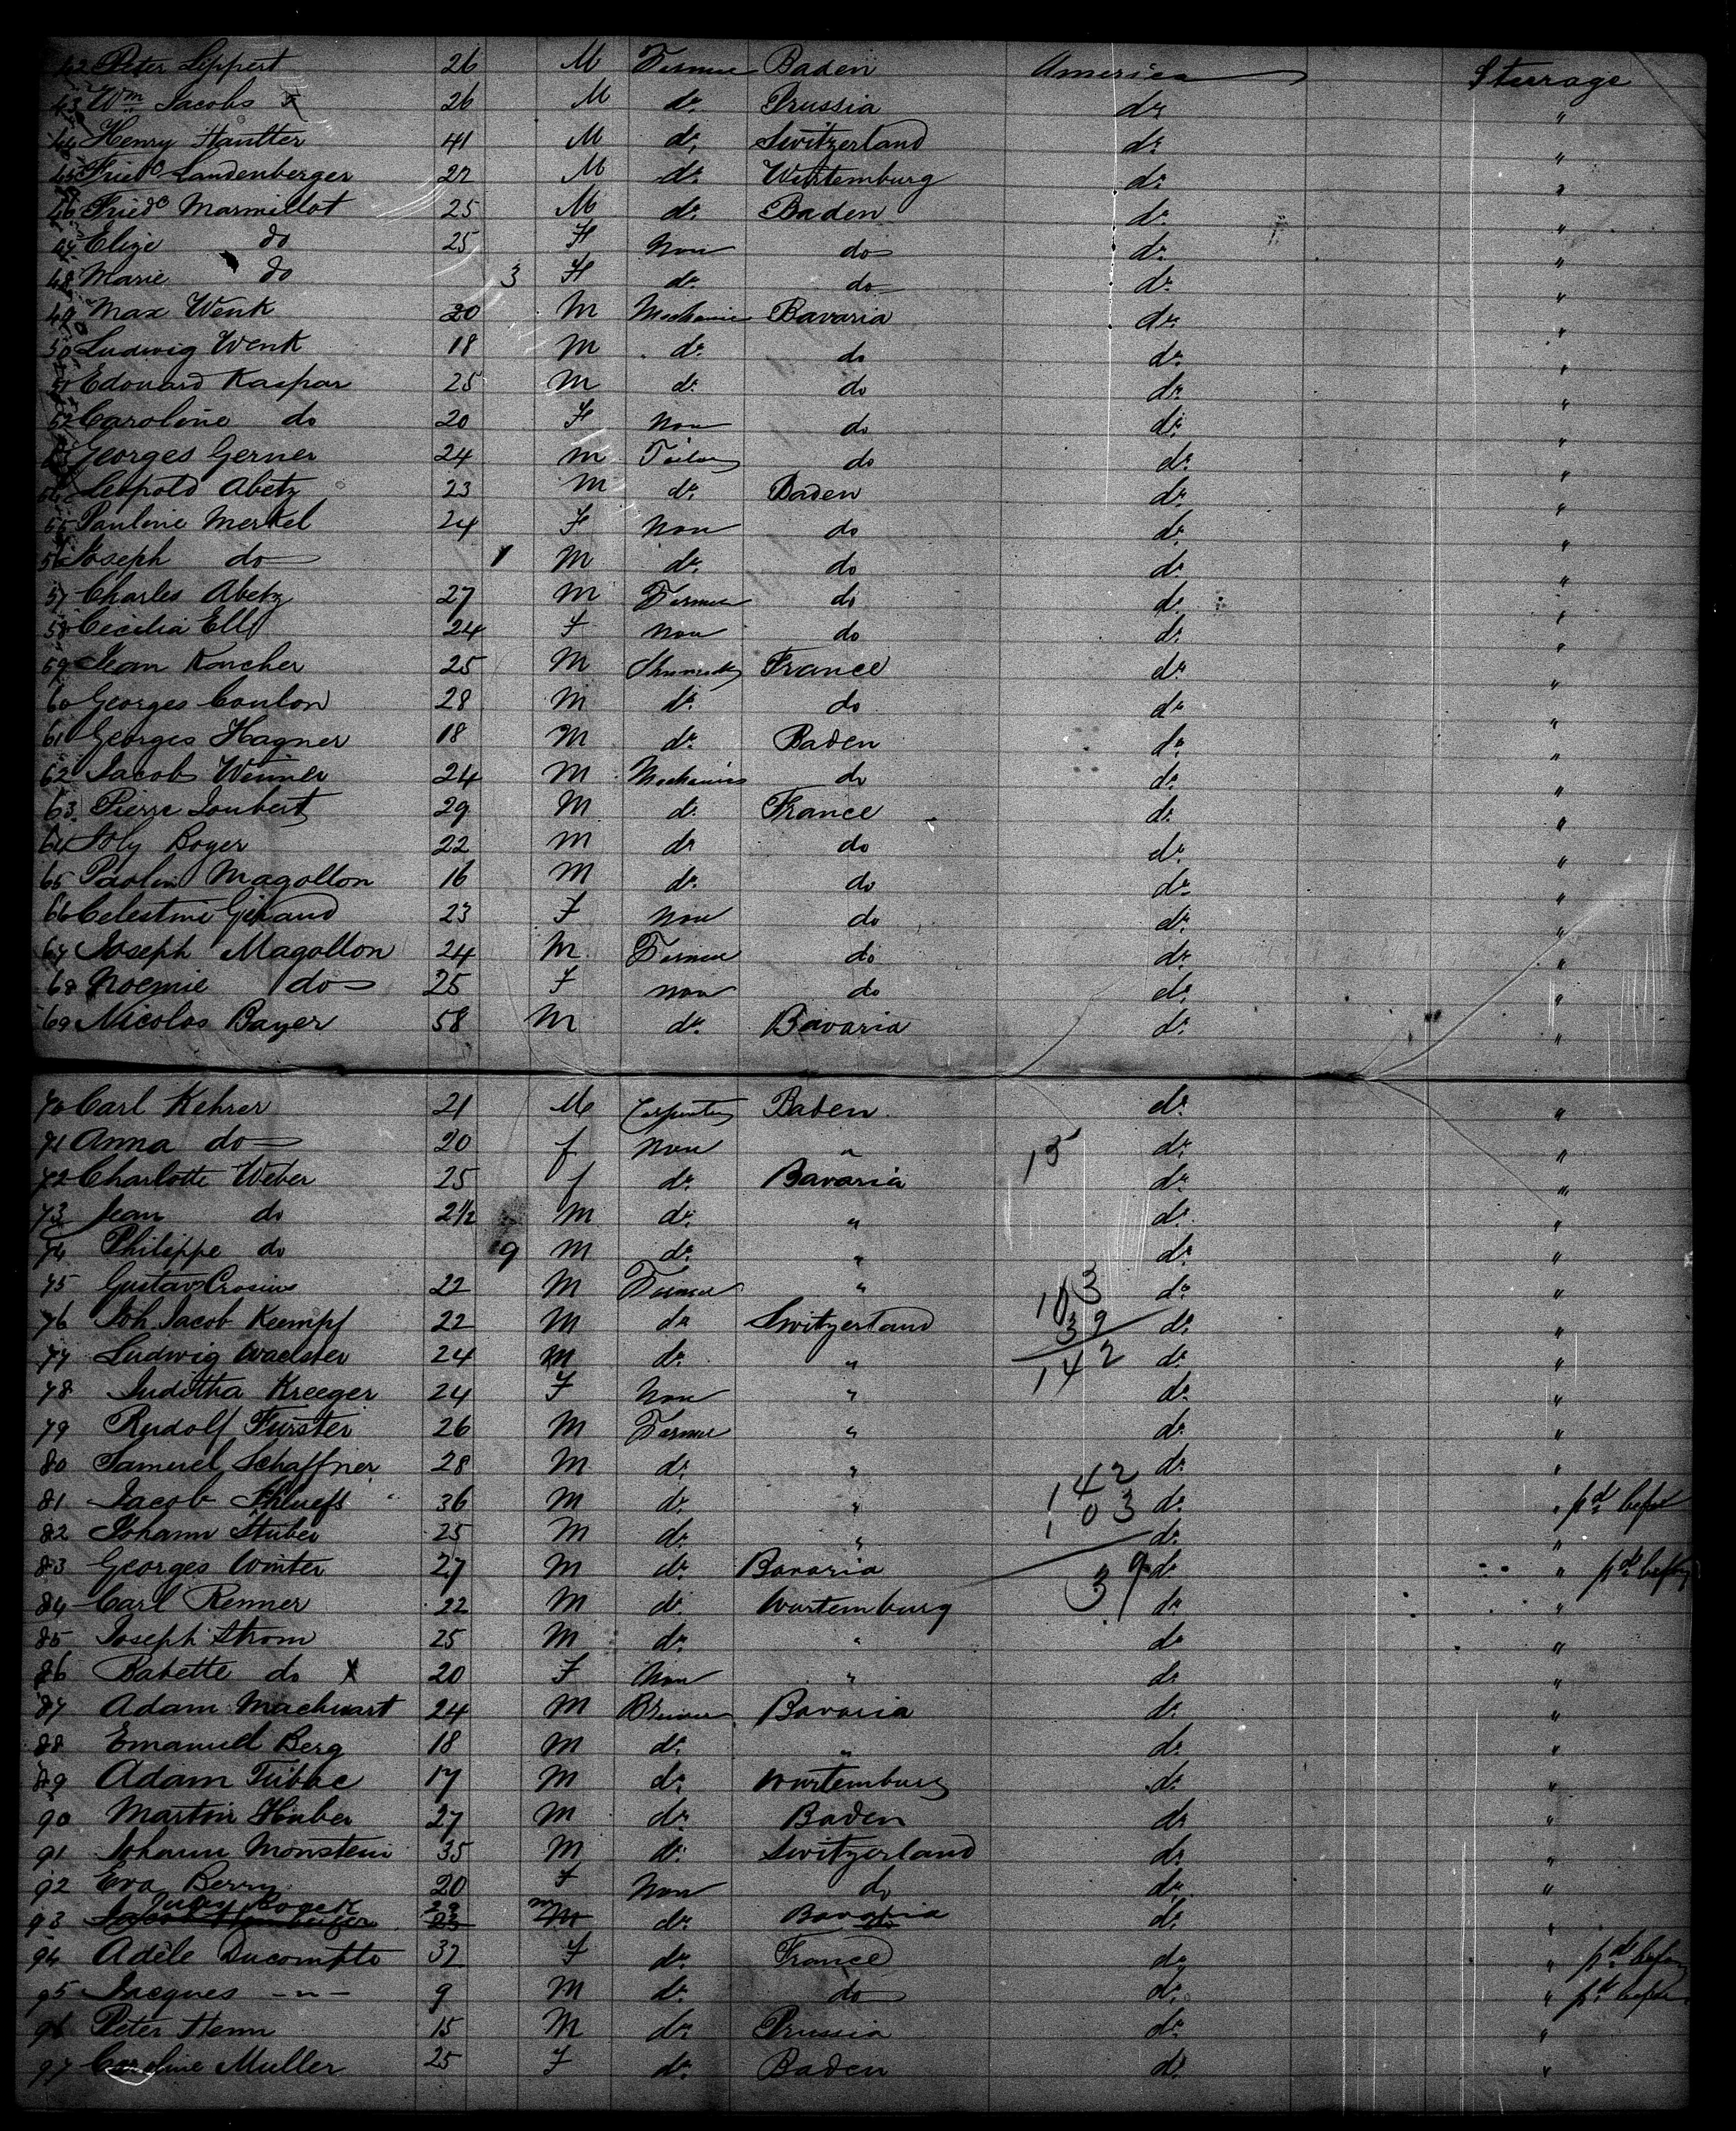 42 Peter Lippert 26 M Farmer Baden America Steerage
43 Wm Jacobs x 26 M do Prussia do "
44 Henry Hautter 41 M do Switzerland do "
45 Friedc Landenberger 22 M do Wurtemburg do "
46 Friedc Marmillot 25 M do Baden do "
47 Elize do 25 F None do do "
48 Marie do 3 F do do do "
49 Max Wenk 20 M Mechanic Bavaria do "
50 Ludwig Wenk 18 M do do do "
51 Edouard Kaspar 25 M do do do "
52 Caroline do 20 F None do do "
53 Georges Gerner 24 M Tailor do do "
54 Leopold Abetz 23 M do Baden do "
55 Pauline Merkel 24 F None do do "
56 Joseph do 1 M do do do "
57 Charles Abetz 27 M Farmer do do "
58 Cecilia Ell 24 F None do do "
59 Jean Karcher 25 M France do "
60 Georges Coulon 28 M do do do "
61 Georges Hagner 18 M do Baden do "
62 Jacob Weimer 24 M Mechanics do do "
63 Pierre Joubert 29 M do France do "
64 Joly Boyer 22 M do do do "
65 Paolin Magollon 16 M do do do "
66 Celestine Giraud 23 F None do do "
67 Joseph Magollon 24 M Farmer do do "
68 Noemie do 25 F None do do "
69 Nicolas Bayer 58 M do Bavaria do "
70 Carl Kehrer 21 M Carpenter Baden do "
71 Anna do 20 f None " 15 do "
72 Charlotte Weber 25 f do Bavaria do "
73 Jean do 2 1/2 M do " do "
74 Philippe do 9 M do " do "
75 Gustav Crosius 22 M Farmer " 103 do "
76 Joh. Jacob Kempf 22 M do Switzerland 39 do "
77 Ludwig Waelster 24 M do " 142 do "
78 Juditha Kreeger 24 F None " do "
79 Rudolf Furster 26 M Farmer " do "
80 Samuel Schaffner 28 M do " 142 do "
81 Jacob 36 M do " 103 do " pd before
82 Johann Stuber 25 M do " do "
83 Georges Winter 27 M do Bavaria 39 do " pd before
84 Carl Renner 22 M do Wurtemburg do "
85 Joseph Strom 25 M do " do "
86 Babette do x 20 F None " do "
87 Adam Machwart 24 M Brewer Bavaria do "
88 Emanuel Berg 18 M do " do "
89 Adam 17 M do Wurtemburg do "
90 Martin Huber 27 M do Baden do "
91 Johann Monstein 35 M do Switzerland do "
92 Eva Berry 20 F None do do "
93 M do Bavaria do "
94 Adèle Ducompte 32 F do France do " pd before
95 Jacques -"- 9 M do do do " pd before
96 Peter Henn 15 M do Prussia do "
97 Caroline Muller 25 F do Baden do "